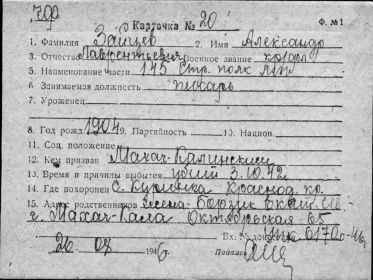 Карточка № 20
Ф. № 1
1. Фамилия Зайцев 2. Имя Александр
3. Отчество Лаврентьевич Военное звание
5. Наименование части 145 Стр. полк
6. Занимаемая должность писарь
7. Уроженец
8. Год рожд 1904 9. Партийность 10. Национ.
11. Соц. положение
12. Кем призван Махач-Калинским
13. Время и причины выбытия убит 3.10.42
14. Где похоронен с. Куринка Краснод. кр.
15. Адрес родственников жена-
г. Махач-Кала Октябрьская 65
Вх. № донес
26 1946 г. Подпись